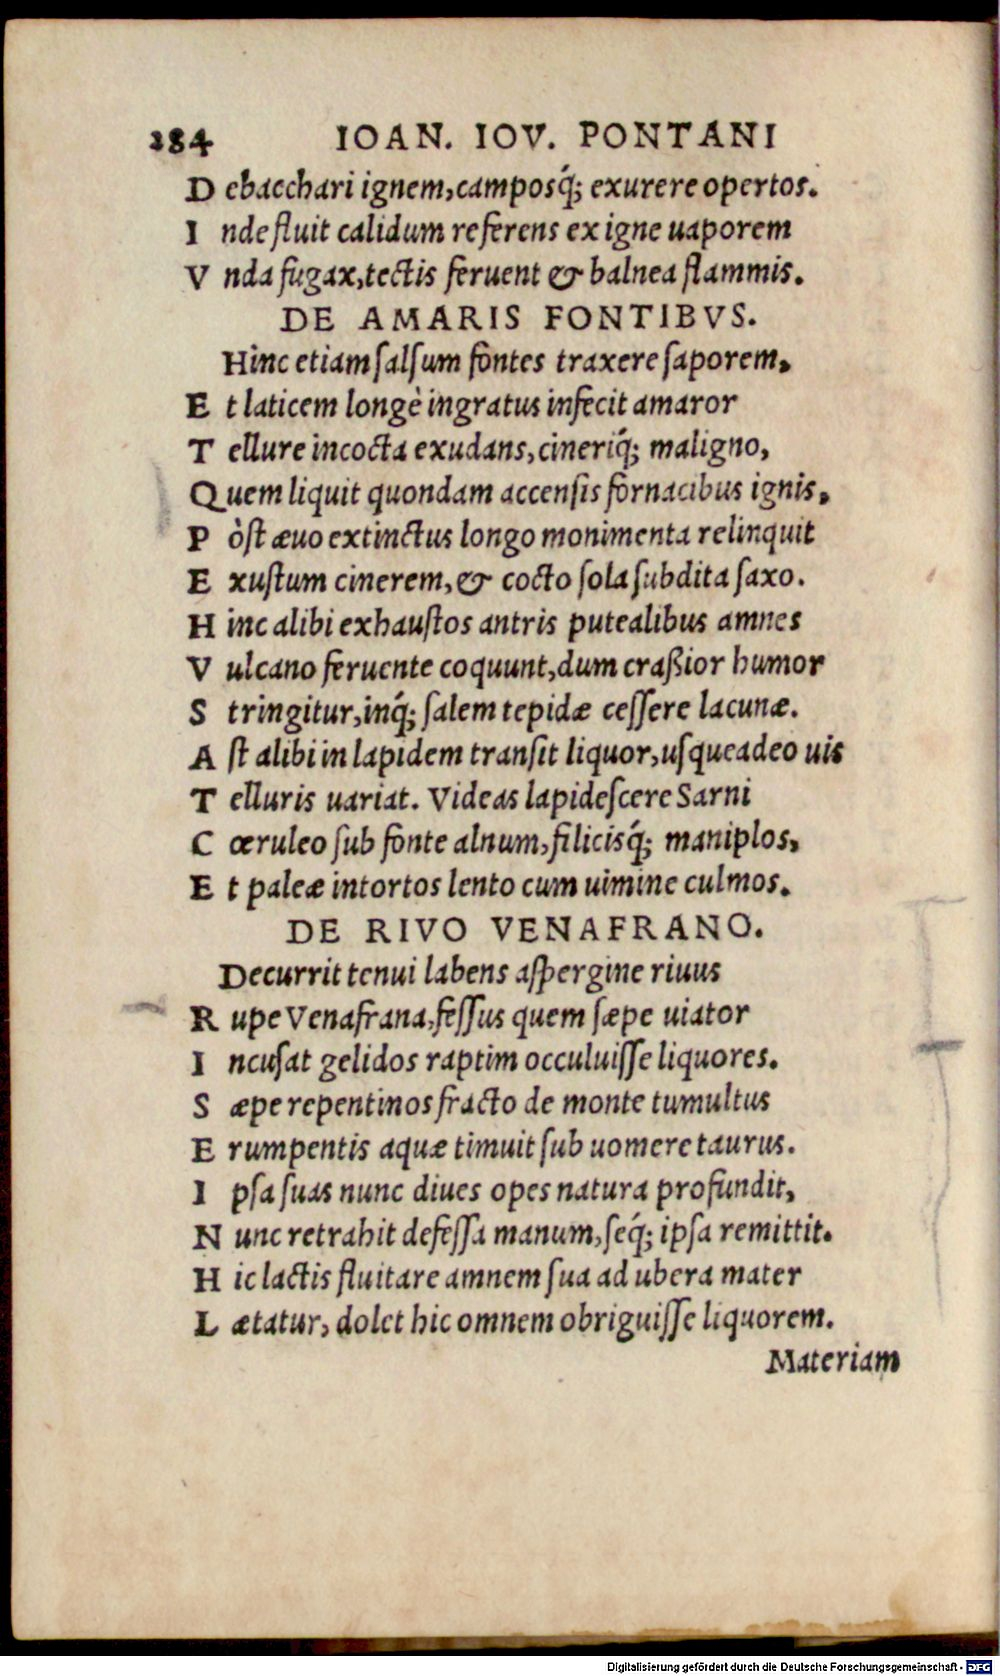 284 IOAN. IOV. PONTANI
D ebacchari ignem, camposq́; exurere opertos.
I nde fluit calidum referens ex igne uaporem
V nda fugax, tectis feruent & balnea flammis.
DE AMARIS FONTIBVS.
Hinc etiam ſalſum fontes traxere ſaporem,
E t laticem longè ingratus infecit amaror
T ellure incocta exudans, cineriq́; maligno,
Q uem liquit quondam accenſis fornacibus ignis,
P òſt æuo extinctus longo monimenta relinquit
E xuſtum cinerem, & cocto ſola ſubdita ſaxo.
H inc alibi exhauſtos antris putealibus amnes
V ulcano feruente coquunt, dum craßior humor
S tringitur, inq́; ſalem tepidæ ceſſere lacunæ.
A ſt alibi in lapidem tranſit liquor, uſqueadeo uis
T elluris uariat. Videas lapideſcere Sarni
C œruleo ſub fonte alnum, filicisq́; maniplos,
E t paleæ intortos lento cum uimine culmos.
DE RIVO VENAFRANO.
Decurrit tenui labens aſpergine riuus
R upe Venafrana, feſſus quem ſæpe uiator
I ncuſat gelidos raptim occuluiſſe liquores.
S æpe repentinos fracto de monte tumultus
E rumpentis aquæ timuit ſub uomere taurus.
I pſa ſuas nunc diues opes natura profundit,
N unc retrahit defeſſa manum, ſeq́; ipſa remittit.
H ic lactis fluitare amnem ſua ad ubera mater
L ætatur, dolet hic omnem obriguiſſe liquorem.
Materiam
Digitalisierung gefördert durch die Deutsche Forschungsgemeinschaft - DFG